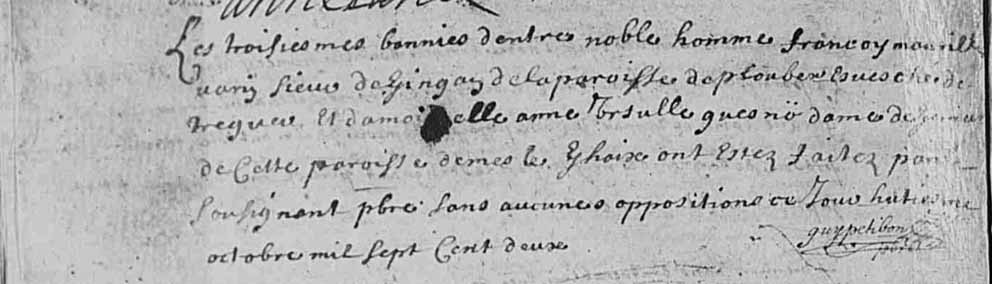 Les troisiesmes bannies dentre noble homme francoy
sieur de de la paroisse de plouber Evesche de
treguer Et damoiselle anne Ursulle dame de
de Cette paroisse demesle ont Estez faitez par
sousignant pbre sans aucunes oppositions ce Jour huties me
octobre mil sept Cent deux
guy petibon
pbre